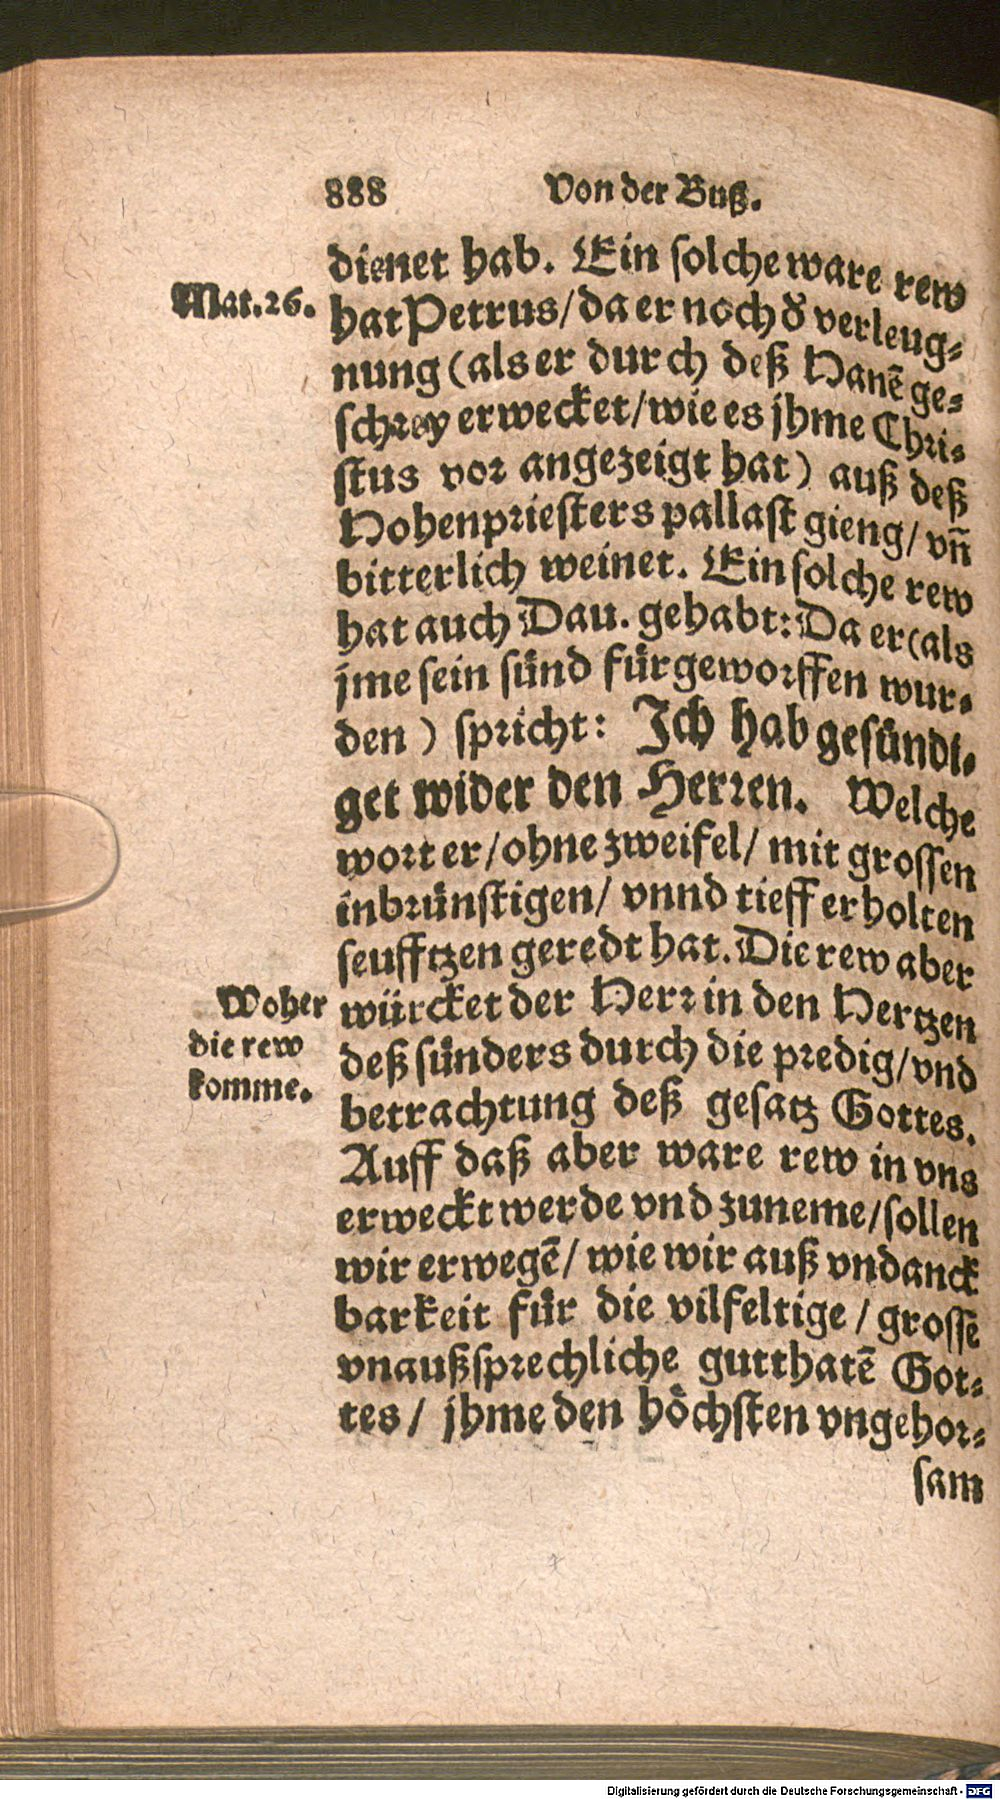 888 Von der Buß.
dienet hab. Ein ſolche ware rew
Mat. 26.
hat Petrus/ da er noch dͤ verleug⸗
nung (als er durch deß Hanẽ ge⸗
ſchrey erwecket/ wie es jhme Chri⸗
ſtus vor angezeigt hat) auß deß
Hohenprieſters pallaſt gieng/ vñ
bitterlich weinet. Ein ſolche rew
hat auch Dau. gehabt: Da er (als
jme ſein ſünd fürgeworffen wur⸗
den) ſpricht: Ich hab geſündi⸗
get wider den Herꝛen. Welche
wort er/ ohne zweifel/ mit groſſen
inbrünſtigen/ vnnd tieff erholten
ſeufftzen geredt hat. Die rew aber
Woher
die rew
komme.
würcket der Herꝛ in den Hertzen
deß ſünders durch die predig/ vnd
betrachtung deß geſatz Gottes.
Auff daß aber ware rew in vns
erweckt werde vnd zuneme/ ſollen
wir erwegẽ/ wie wir auß vndanck
barkeit für die vilfeltige/ groſſẽ
vnaußſprechliche gutthatẽ Got⸗
tes/ jhme den höchſten vngehor⸗
ſam
Digitalisierung gefördert durch die Deutsche Forschungsgemeinschaft - DFG